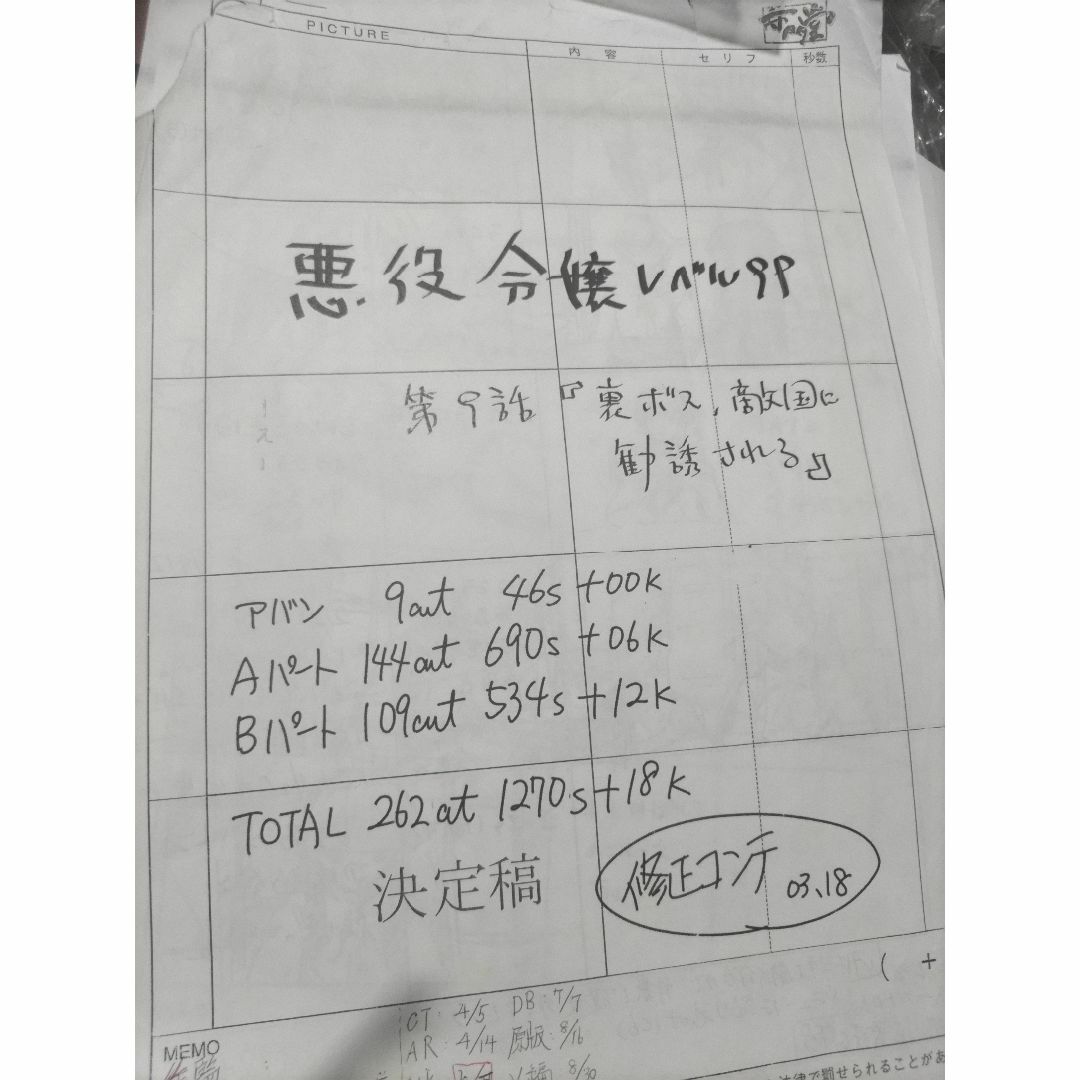 PICTURE
内容 セリフ 秒数
悪役令嬢レベル99
第9話 『裏ボス、敵国に
勧誘される』
アバン 9cut 46s+00k
Aパート 144cut 690s+06k
Bパート 109cut 534s+12k
TOTAL 262cut 1270s+18k
決定稿
修正コンテ 03.18
( +
CT: 4/5 DB: 7/7
AR: 4/14 原版: 8/16
MEMO
8/30
法律で罰せられることがあ